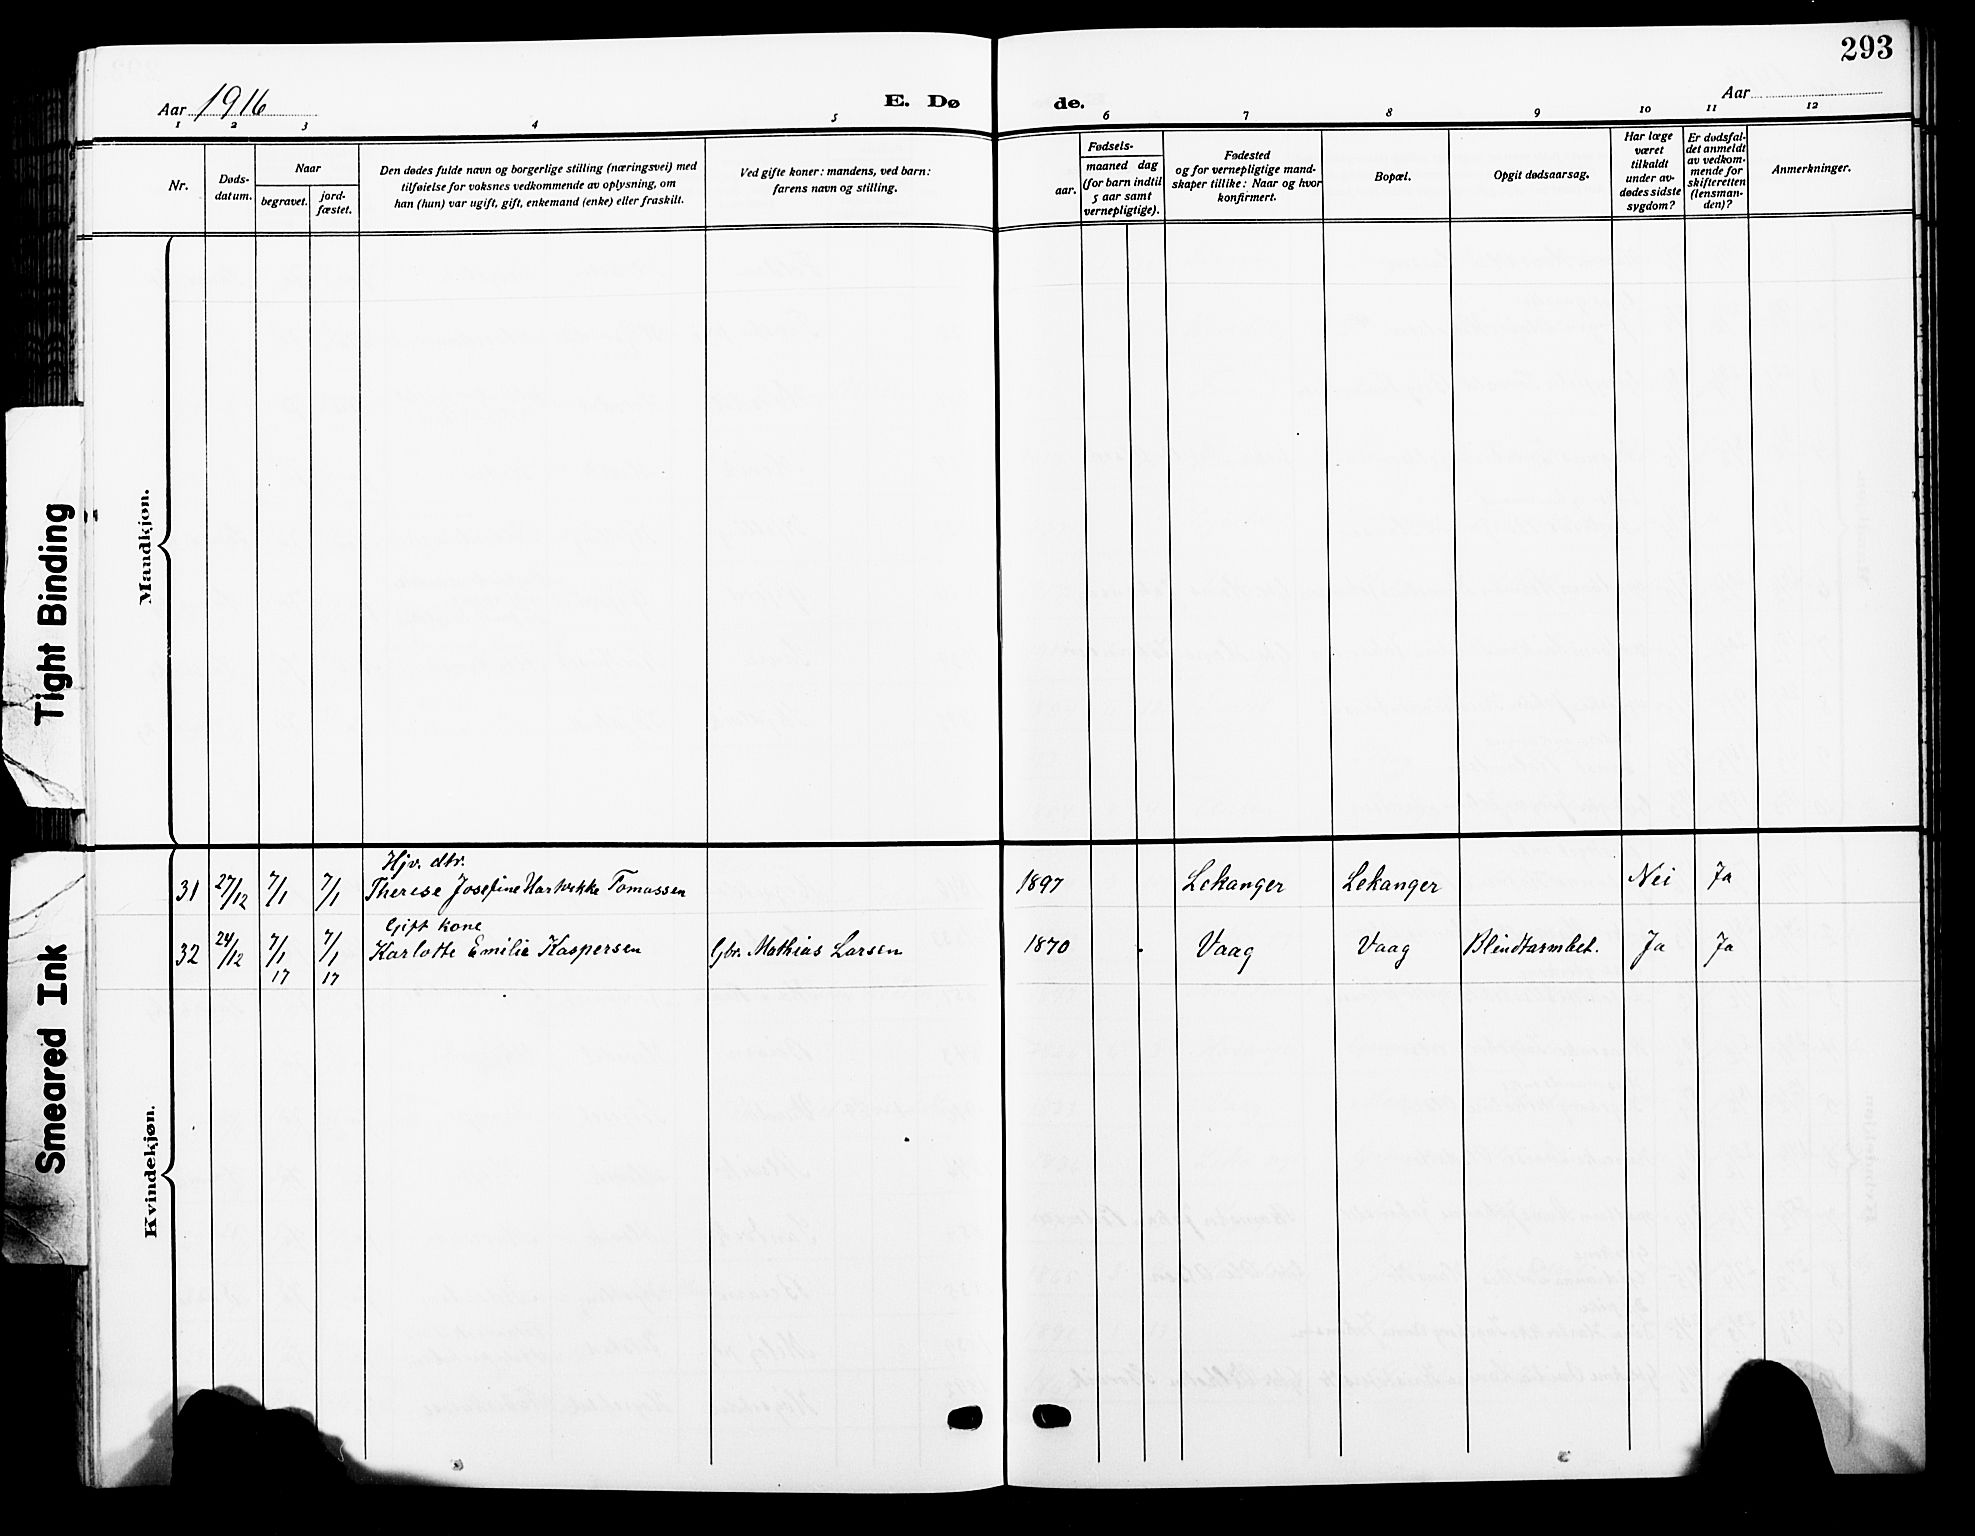 293
Aar 1916
E. Dø
de.
Aar
1 2 3 4 5 6 7 8 9 10 11 12
Nr.
Døds-
datum.
Naar
begravet.
jord-
fæstet.
Den dødes fulde navn og borgerlige stilling (næringsvei) med
tilføielse for voksnes vedkommende av oplysning, om
han (hun) var ugift, gift, enkemand (enke) eller fraskilt.
Ved gifte koner: mandens, ved barn:
farens navn og stilling.
Fødsels-
aar.
maaned dag
(for barn indtil
5 aar samt
vernepligtige).
Fødested
og for vernepligtige mand-
skaper tillike: Naar og hvor
konfirmert.
Bopæl.
Opgit dødsaarsag.
Har læge
været
tilkaldt
under av-
dødes sidste
sygdom?
Er dødsfal-
det anmeldt
av vedkom-
mende for
skifteretten
(lensman-
den)?
Anmerkninger.
Mandkjøn.
Hjv. dtr.
31 27/12 7/1 7/1 Therese Josefine Hartvikke Tomassen 1897 Lekanger Lekanger Nei Ja
Gift kone
32 24/12 7/1 7/1 Karlotte Emilie Kaspersen Gbr. Mathias Larsen 1870 Vaag Vaag Blindtarmbet. Ja Ja
17 17
Kvindekjøn.
Tight Binding
Smeared Ink